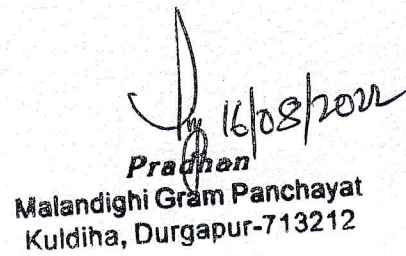 16/08/2022
Pradhan
Malandighi Gram Panchayat
Kuldiha, Durgapur-713212